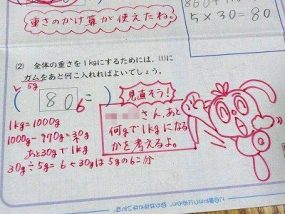 重さのかけ算が使えたね。
5×30=80
(2) 全体の重さを1kgにするためには、(1)に
ガムをあと何こ入れればよいでしょう。
5g
(80 6こ)
見直そう!
さん、あと
何gで1kgになる
かを考えるよ。
1kg=1000g
1000g-970g=30g
あと30gで1kg
30g÷5g=6 ←30gは5gの6こ分